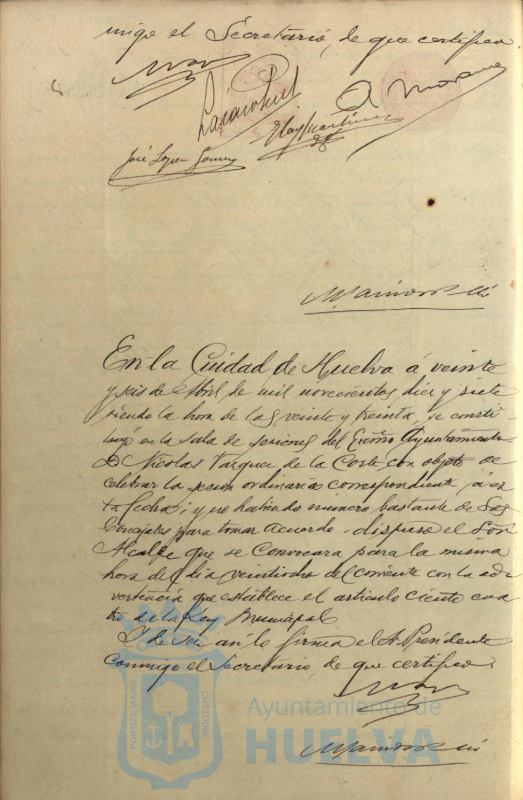 migo el Secretario, de que certifico.
José Lopez Gomez
A Moreno
En la Ciudad de Huelva á veinte
y seis de Abril de mil novecientos diez y siete
siendo la hora de las veinte y treinta, se consti-
tuyó en la Sala de sesiones del Excmo Ayuntamiento
D. Nicolas Vazquez de la Corte con objeto de
celebrar la sesion ordinaria correspondiente á es-
ta fecha; y no habiendo número bastante de Sres
Concejales para tomar acuerdo, dispuso el Señor
Alcalde que se convocara para la misma
hora del dia veintiocho del corriente con la ad-
vertencia que establece el articulo ciento cua-
tro de la Ley Municipal.
Y de ser así lo firma el Sr. Presidente
conmigo el Secretario, de que certifico.
PORTUS MARIS
CUSTODIA
Ayuntamiento de
HUELVA